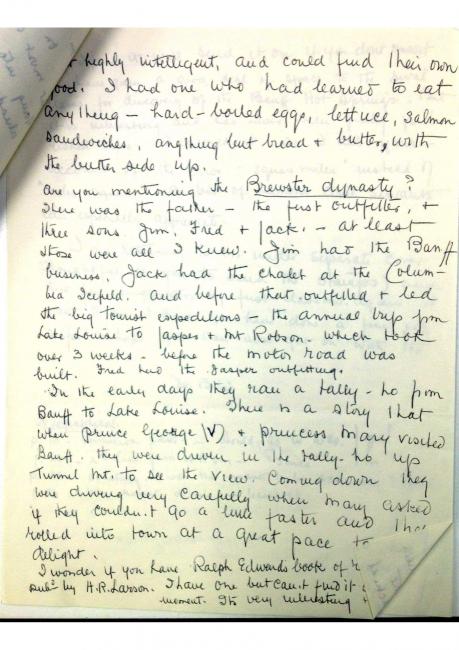 highly intelligent, and could find their own
food. I had one who had learned to eat
anything - hard-boiled eggs, lettuce, salmon
sandwiches, anything but bread & butter, with
the butter side up.
Are you mentioning the Brewster dynasty?
There was the father - the first outfitter, &
three sons Jim, Fred & Jack. - at least
those were all I knew. Jim had the Banff
business, Jack had the chalet at the Colum-
bia Icefield. and before that outfitted & led
the big tourist expeditions - the annual trip from
Lake Louise to Jasper & Mt Robson. which took
over 3 weeks - before the motor road was
built. Fred had the Jasper outfitting.
In the early days they ran a tally-ho from
Banff to Lake Louise. There is a story that
when Prince George (V) & Princess Mary visited
Banff. they were driven in the tally-ho up
Tunnel Mt. to see the view. Coming down they
were driving very carefully when Mary asked
if they couldn't go a little faster and
rolled into town at a great pace
delight.
I wonder if you have Ralph Edwards book of
by H.R. Larson. I have one but can't find it
moment. It's very interesting